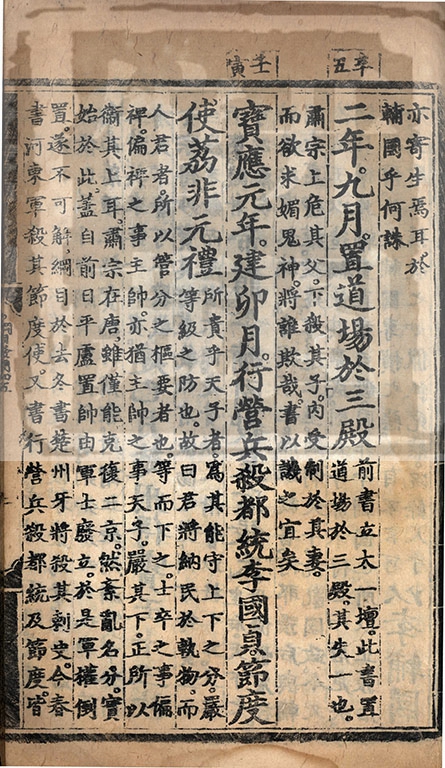 辛丑
亦寄生焉耳於
輔國乎何誅
二年。九月。置道場於三殿
前書立太一壇。此書置
道場於三殿。其失一也。
肅宗上危其父。下殺其子。內受制於其妻。
而欲求媚鬼神。將誰欺哉。書以譏之宜矣
壬寅
寶應元年。建卯月。行營兵殺都統李國貞。節度
使荔非元禮
所貴乎天子者。爲其能守上下之分。嚴
等級之防也。故曰君將納民於軌物。而
人君者。所以管分之樞要者也。等而下之。士卒之事偏
裨。偏裨之事主帥。亦猶主帥之事天子。嚴其下。正所以
衛其上耳。肅宗在唐。雖僅能克復二京。然紊亂名分。實
始於此。蓋自前日平盧置帥由軍士廢立。於是軍權倒
置。遂不可解。綱目於去冬書楚州牙將殺其刺史。今春
書河東軍殺其節度使。又書行營兵殺都統及節度。皆